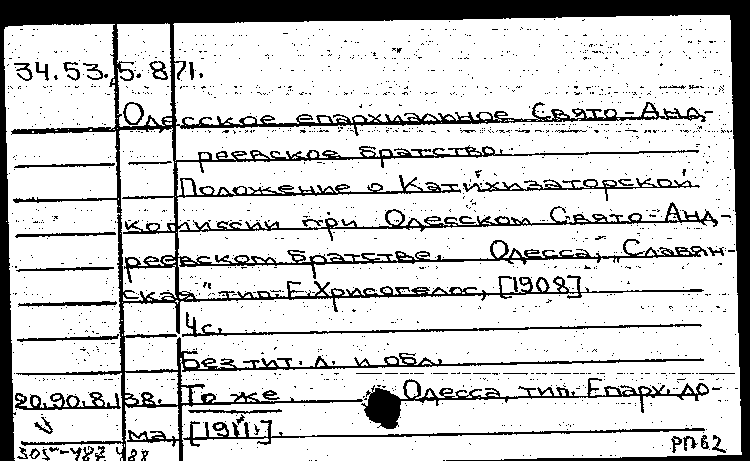 34.53.5.871.
Одесское епархиальное Свято-Анд-
реевское братство.
Положение о Катихизаторской
комиссии при Одесском Свято-Анд-
реевском братстве. Одесса, „Славян-
ская" тип. Е. Хрисогелос, [1908].
4 с.
Без тит. л. и обл.
20.90.8.138. То же. Одесса, тип. Епарх. до-
ма, [1911].
305-487 488
РП62